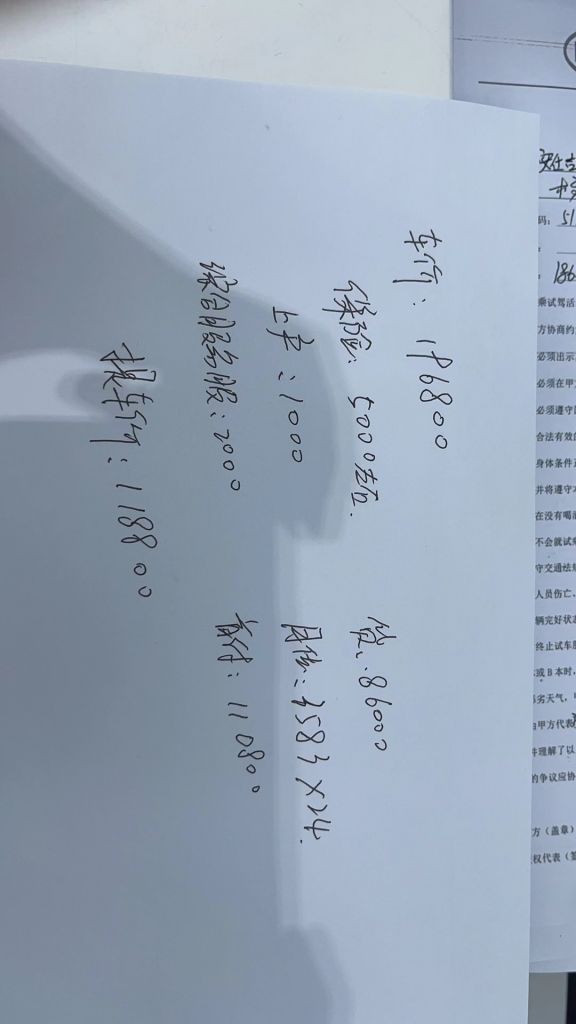 车价：196800
保险：5000左右.
上户：1000
综合服务服：2000
提车价：118800
贷：86000
月供：3583×24.
首付：110800
码：51
186
乘试驾活
方协商约
必须出示
必须在甲
必须遵守
合法有效的
身体条件
并将遵守
在没有喝
不会就试
守交通法规
人员伤亡、
辆完好状态
终止试车
或B本时，
劣天气，
由甲方代表
并理解了以
的争议应协
方（盖章）
权代表（签